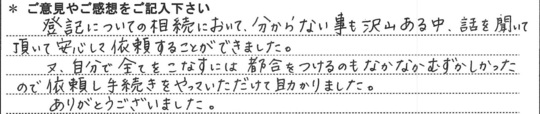 * ご意見やご感想をご記入下さい
登記についての相続において、分からない事も沢山ある中、話を聞いて
頂いて安心して依頼することができました。
又、自分で全てをこなすには都合をつけるのもなかなかむずかしかった
ので依頼し手続きをやっていただけて助かりました。
ありがとうございました。